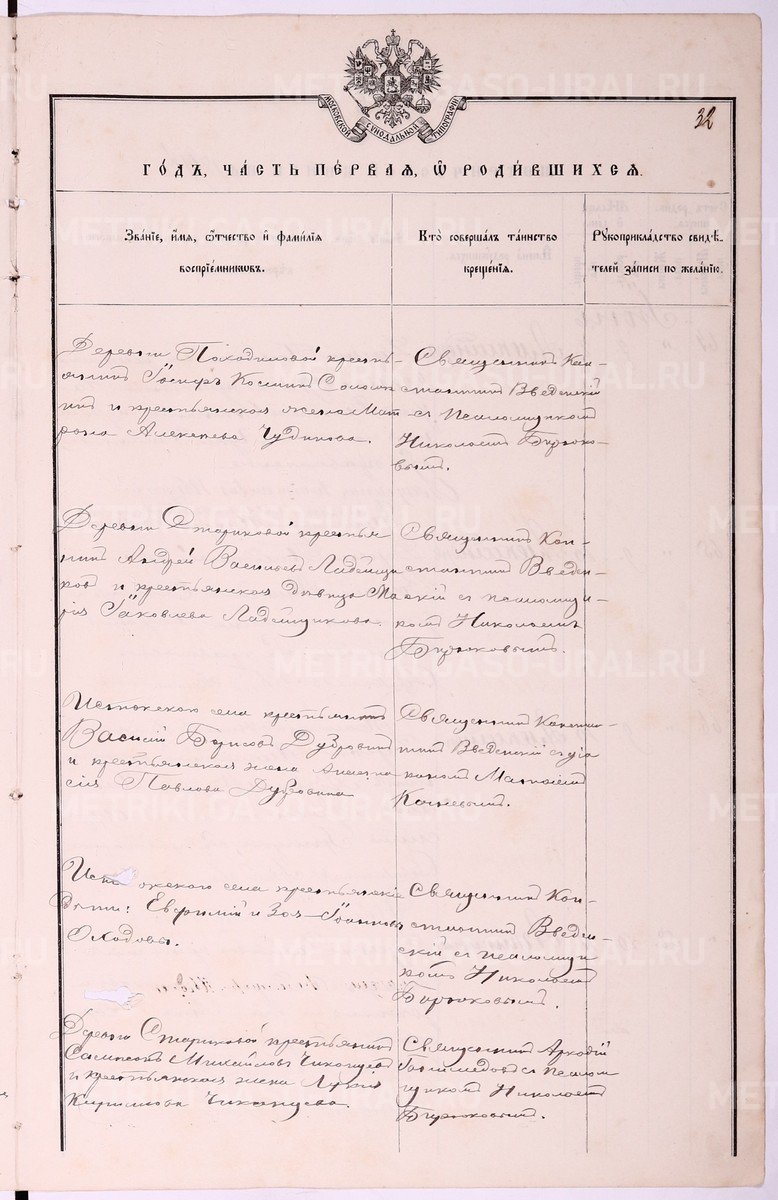 МОСКОВСКОЙ СѴНОДАЛЬНОЙ ТИПОГРАФІИ
32
ГОДЪ, ЧАСТЬ ПЕРВАЯ, Ѡ РОДИВШИХСЯ.
Званіе, имя, ѻтчество и фамилія
воспріемниковъ.
Кто совершалъ таинство
крещенія.
Рукоприкладство свидѣ-
телей записи по желанію.
Деревни Походиловой кресть-
янинъ Іосифъ Косминъ
и крестьянская жена Мат
рона Алексѣева Чудинова.
Священникъ Кон-
стантинъ Введенскій
съ псаломщикомъ
Николаемъ Бирюко-
вымъ.
Деревни Стариковой крестья
нинъ Андрей Васильевъ Ладейщи
ковъ и крестьянская дѣвица Ма
рія Іаковлева Ладейщикова.
Священникъ Кон-
стантинъ Введен-
скій съ псаломщи-
комъ Николаемъ
Бирюковымъ.
Истокскаго села крестьянинъ
Василій Борисовъ Дубровинъ
и крестьянская жена Анаста
сія Павлова Дубровина
Священникъ Констан-
тинъ Введенскій съ діа
кономъ
Исто окскаго села крестьянскіе
дѣти: Евфимій и Зоя Іоанновы
Священникъ Кон-
стантинъ Введен
скій съ псаломщи
комъ Николаемъ
Бирюковымъ.
Деревни Стариковой крестьянинъ
Сампсонъ Михайловъ Чиканцевъ
и крестьянская жена
Кириллова Чиканцева.
Священникъ Аркадій
съ псалом
щикомъ Николаемъ
Бирюковымъ.
METRIKI.GASO-URAL.RU